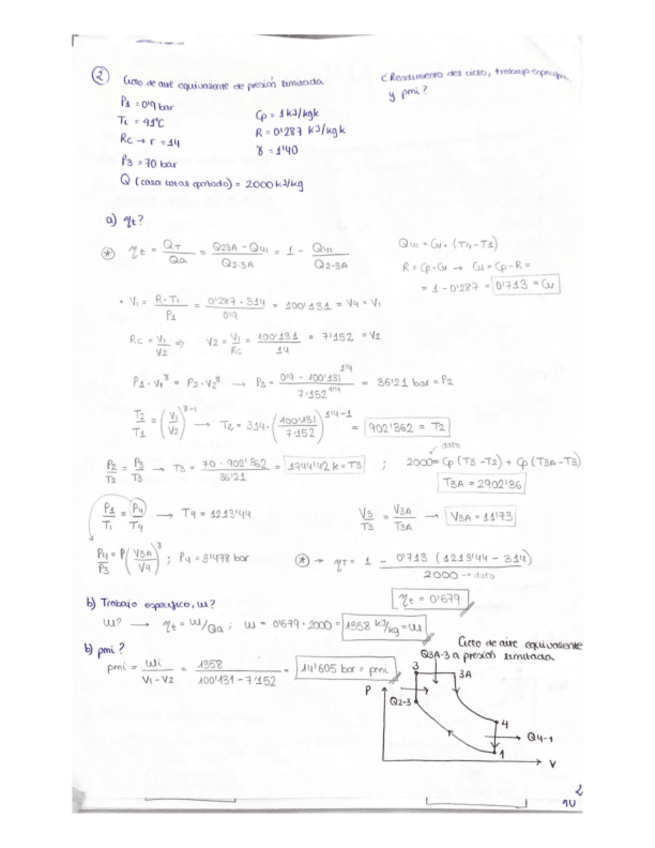 ② Ciclo de aire equivalente de presión limitada
¿Rendimiento del ciclo, trabajo específico y pmi?
P1 = 0'9 bar
T1 = 41ºC
Rc → r = 14
P3 = 70 bar
Q (calor total aportado) = 2000 kJ/kg
Cp = 1 kJ/kgk
R = 0'287 kJ/kgk
γ = 1'40
a) ηt?
* ηt = QT/Qa = (Q23A - Q41)/Q2-3A = 1 - Q41/Q2-3A
Q41 = Cv · (T4-T1)
R = Cp-Cv → Cv = Cp-R =
= 1 - 0'287 = 0'713 = Cv
· V1 = R·T1/P1 = 0'287·314/0'9 = 100'131 = V4 = V1
Rc = V1/V2 ⇒ V2 = V1/Rc = 100'131/14 = 7'152 = V2
P1·V1^γ = P2·V2^γ → P2 = 0'9 · 100'131^1'4 / 7'152^1'4 = 36'21 bar = P2
T2/T1 = (V1/V2)^γ-1 → T2 = 314·(100'131/7'152)^1'4-1 = 902'362 = T2
dato
P2/T2 = P3/T3 → T3 = 70 · 902'362/36'21 = 1744'42 k = T3 ; 2000 = Cp (T3-T2) + Cp (T3A-T3)
T3A = 2902'86
P1/T1 = P4/T4 → T4 = 1213'44
V3/T3 = V3A/T3A → V3A = 11'73
P4/P3 = P(V3A/V4)^γ ; P4 = 3'478 bar
* → ηT = 1 - 0'713 (1213'44 - 314)/2000 → dato
ηt = 0'679
b) Trabajo específico, w?
w? → ηt = w/Qa ; w = 0'679 · 2000 = 1358 kJ/kg = w
b) pmi?
pmi = wi/(V1-V2) = 1358/(100'131-7'152) = 14'605 bar = pmi
Ciclo de aire equivalente
a presión limitada
Q3A-3
3
3A
P
Q2-3
4
Q4-1
1
V
2